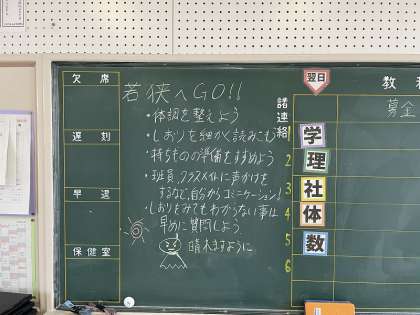 欠席
遅刻
早退
保健室
若狭へGO!!
・体調を整えよう
・しおりを細かく読みこもう
・持ちものの準備をすすめよう
・班員、クラスメイトに声かけを
するなど、自分からコミュニケーション♪
・しおりをみてもわからない事は
早めに質問しよう.
晴れますように
諸連絡
翌日
教科
募金
1 学
2 理
3 社
4 体
5 数
6